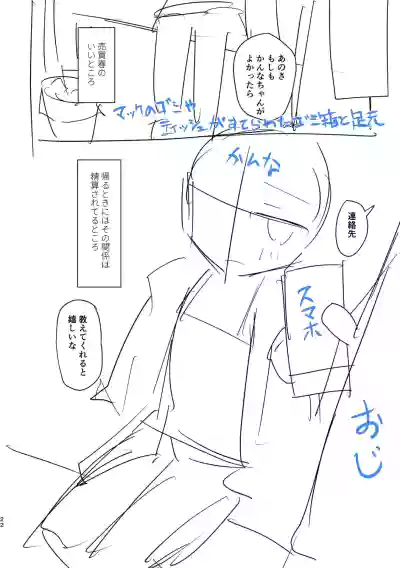 あのさ
もしも
かんなちゃんが
よかったら
売買春の
いいところ
マックのゴミや
ティッシュがすてられたゴミ箱と足元
かんな
連絡先
帰るときにはその関係は
精算されてるところ
スマホ
教えてくれると
嬉しいな
おじ
22